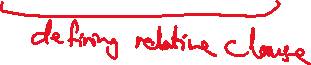 defining relative clause